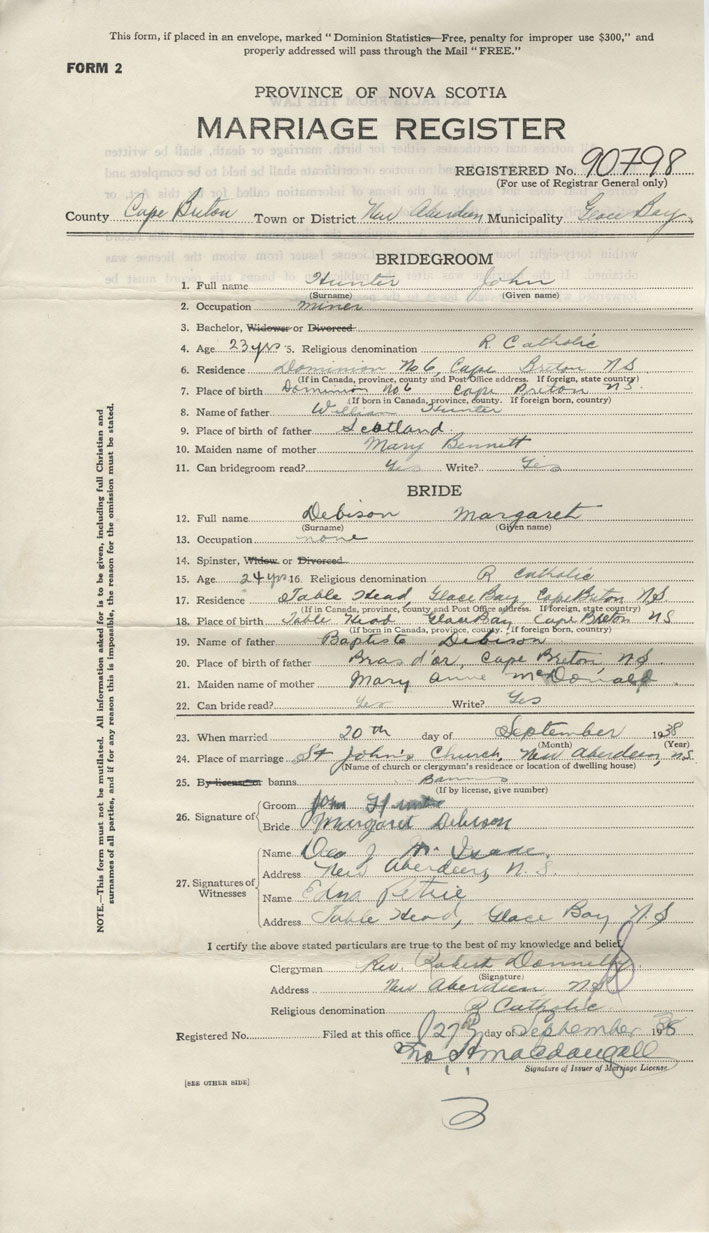 This form, if placed in an envelope, marked "Dominion Statistics—Free, penalty for improper use $300," and
properly addressed will pass through the Mail "FREE."
FORM 2
PROVINCE OF NOVA SCOTIA
MARRIAGE REGISTER
REGISTERED No. 90798
(For use of Registrar General only)
County Cape Breton Town or District New Aberdeen Municipality Glace Bay
BRIDEGROOM
1. Full name Hunter John
(Surname) (Given name)
2. Occupation miner
3. Bachelor, Widower or Divorced
4. Age 23 yrs 5. Religious denomination R Catholic
6. Residence Dominion No 6, Cape Breton NS
(If in Canada, province, county and Post Office address. If foreign, state country)
7. Place of birth Dominion No 6 Cape Breton NS.
(If born in Canada, province, county. If foreign born, country)
8. Name of father William Hunter
9. Place of birth of father Scotland
10. Maiden name of mother Mary Bennett
11. Can bridegroom read? Yes Write? Yes
BRIDE
12. Full name Debison Margaret
(Surname) (Given name)
13. Occupation none
14. Spinster, Widow or Divorced
15. Age 24 yrs 16. Religious denomination R Catholic
17. Residence Table Head, Glace Bay, Cape Breton NS
(If in Canada, province, county and Post Office address. If foreign, state country)
18. Place of birth Table Head Glace Bay Cape Breton NS
(If born in Canada, province, county. If foreign born, country)
19. Name of father Baptiste Debison
20. Place of birth of father Bras d'or, Cape Breton, NS
21. Maiden name of mother Mary Anne McDonald
22. Can bride read? Yes Write? Yes
23. When married 20th day of September 1938
(Month) (Year)
24. Place of marriage St John's Church, New Aberdeen, N.S.
(Name of church or clergyman's residence or location of dwelling house)
25. By license or banns Banns
(If by license, give number)
26. Signature of
Groom John Hunter
Bride Margaret Debison
27. Signatures of Witnesses
Name Geo J
Address New Aberdeen, N.S.
Name Edna Petrie
Address Table Head, Glace Bay N.S
I certify the above stated particulars are true to the best of my knowledge and belief,
Clergyman Rev. Robert Donnelly
(Signature)
Address New Aberdeen NS
Religious denomination R Catholic
Registered No. Filed at this office 27th day of September 1938
MacDougall
Signature of Issuer of Marriage License.
[SEE OTHER SIDE]
NOTE.—This form must not be mutilated. All information asked for is to be given, including full Christian and
surnames of all parties, and if for any reason this is impossible, the reason for the omission must be stated.